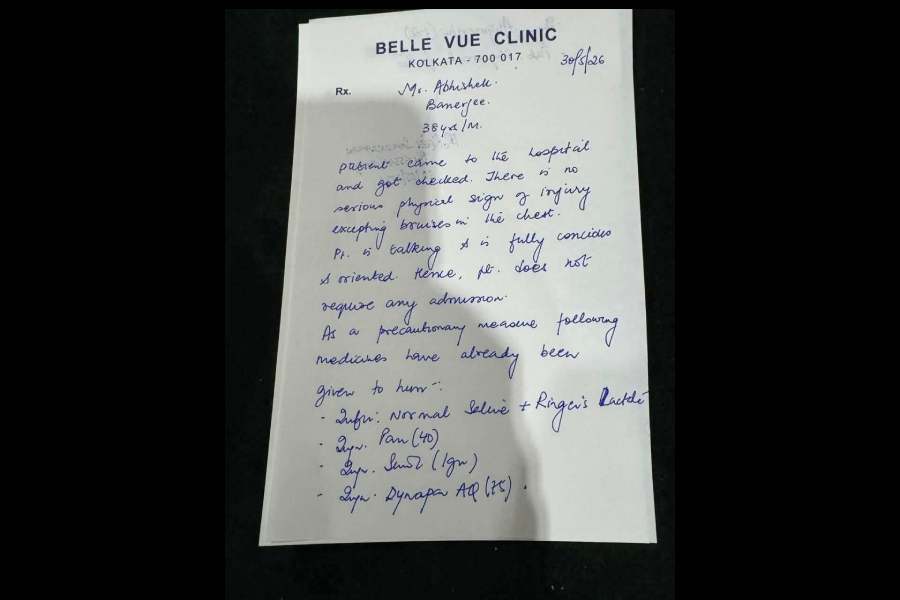 BELLE VUE CLINIC
KOLKATA - 700 017
30/5/26
Rx.
Mr. Abhishek
Banerjee.
38 yrs/M.
patient came to the hospital
and got checked. There is no
serious physical sign of injury
excepting bruises in the chest.
Pt. is talking & is fully concious
& oriented. Hence, pt. does not
require any admission.
As a precautionary measure following
medicines have already been
given to him -:
- Infn: Normal Saline + Ringer's Lactate
- Inj. Pan (40)
- Inj. (1gm)
- Inj. Dynapar AQ (75).